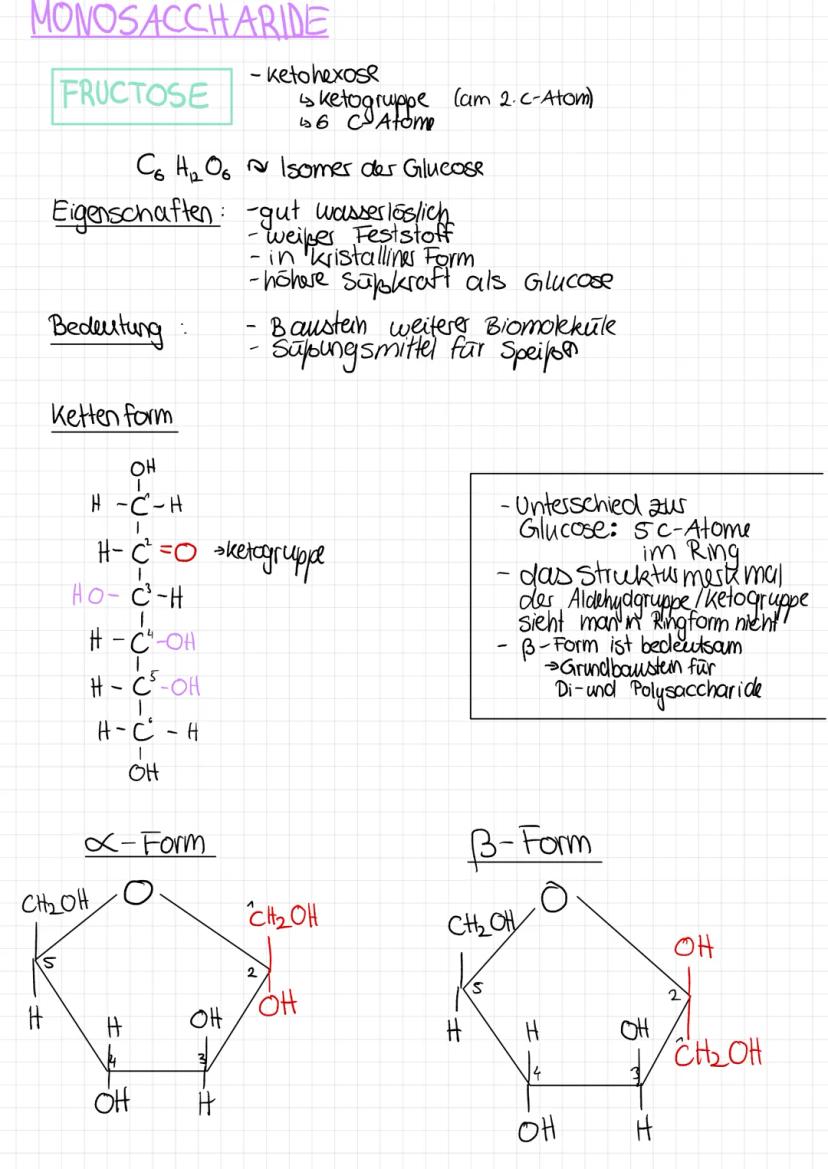 MONOSACCHARIDE
FRUCTOSE
- Ketohexose
↳ Ketogruppe (am 2. C-Atom)
↳ 6 C-Atome
C₆ H₁₂ O₆ ~ Isomer der Glucose
Eigenschaften: - gut wasserlöslich
- weißer Feststoff
- in kristalliner Form
- höhere Süßkraft als Glucose
Bedeutung : - Baustein weiterer Biomoleküle
- Süßungsmittel für Speißen
Kettenform
OH
H - C¹ - H
H - C² = O → Ketogruppe
HO - C³ - H
H - C⁴ - OH
H - C⁵ - OH
H - C⁶ - H
OH
- Unterschied zur
Glucose: 5 C-Atome
im Ring
- das Strukturmerkmal
der Aldehydgruppe/Ketogruppe
sieht man in Ringform nicht
- β-Form ist bedeutsam
→ Grundbaustein für
Di- und Polysaccharide
α-Form
CH₂OH O
¹CH₂OH
5 2
OH
H H OH
4 3
OH H
β-Form
O
CH₂OH
OH
5 2
H H OH
¹CH₂OH
4 3
OH H